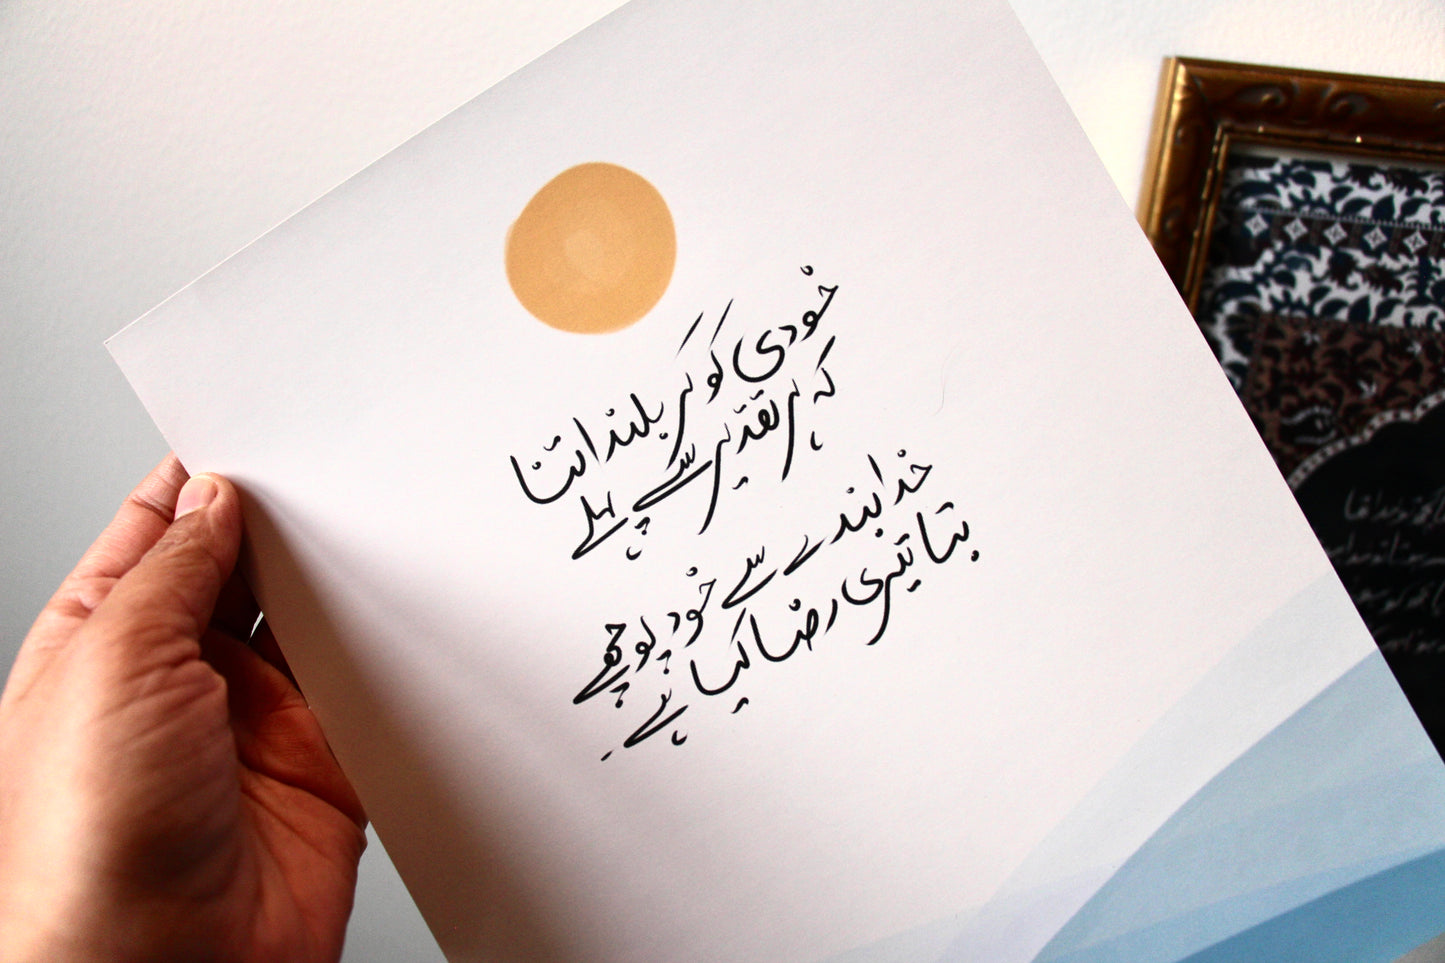 خودی کو کر بلند اتنا
کہ ہر تقدیر سے پہلے
خدا بندے سے خود پوچھے
بتا تیری رضا کیا ہے۔